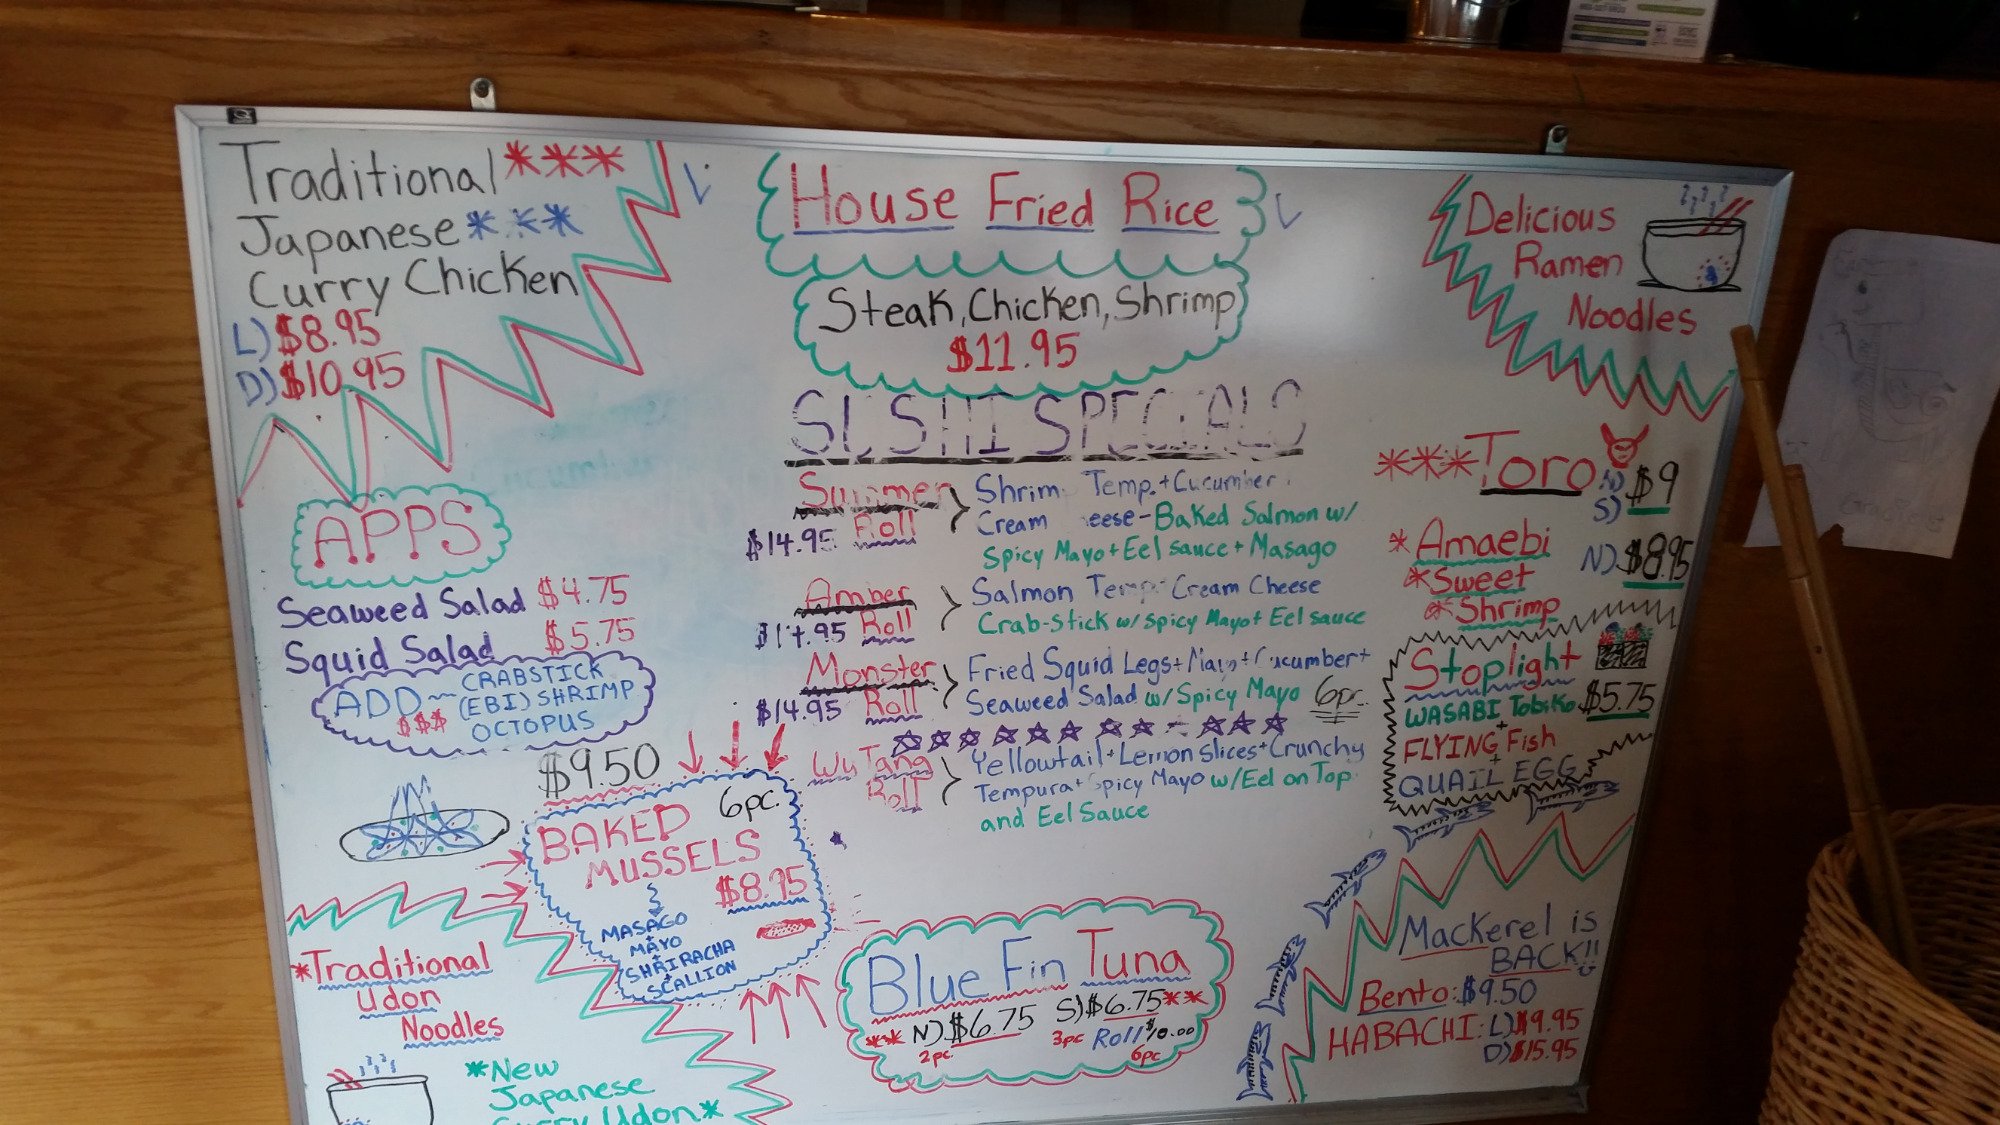 Traditional ***
Japanese ***
Curry Chicken
L) $8.95
D) $10.95
House Fried Rice
Steak, Chicken, Shrimp
$11.95
Delicious
Ramen
Noodles
SUSHI SPECIALS
Summer Roll
$14.95
Shrim Temp. + Cucumber
Cream eese - Baked Salmon w/
Spicy Mayo + Eel sauce + Masago
Amber Roll
$14.95
Salmon Temp Cream Cheese
Crab-stick w/ Spicy Mayo + Eel sauce
Monster Roll
$14.95
Fried Squid Legs + Mayo + Cucumber +
Seaweed Salad w/ Spicy Mayo 6pc.
Wu Tang Roll
Yellowtail + Lemon Slices + Crunchy
Tempura + Spicy Mayo w/ Eel on Top
and Eel Sauce
*** Toro
N) $9
S)
* Amaebi N) $8.95
* Sweet
* Shrimp
Stoplight
WASABI Tobiko $5.75
+
FLYING Fish
+
QUAIL EGG
APPS
Seaweed Salad $4.75
Squid Salad $5.75
ADD ~ CRABSTICK
$$$ (EBI) SHRIMP
OCTOPUS
$9.50
6pc.
BAKED
MUSSELS
$8.95
MASAGO
+
MAYO
+
SHRIRACHA
+
SCALLION
*Traditional
Udon
Noodles
*New
Japanese
Curry Udon*
Blue Fin Tuna
** N) $6.75 S) $6.75 **
2pc. 3pc Roll $10.00
6pc
Mackerel is
BACK!!
Bento: $9.50
HABACHI: L) $9.95
D) $15.95